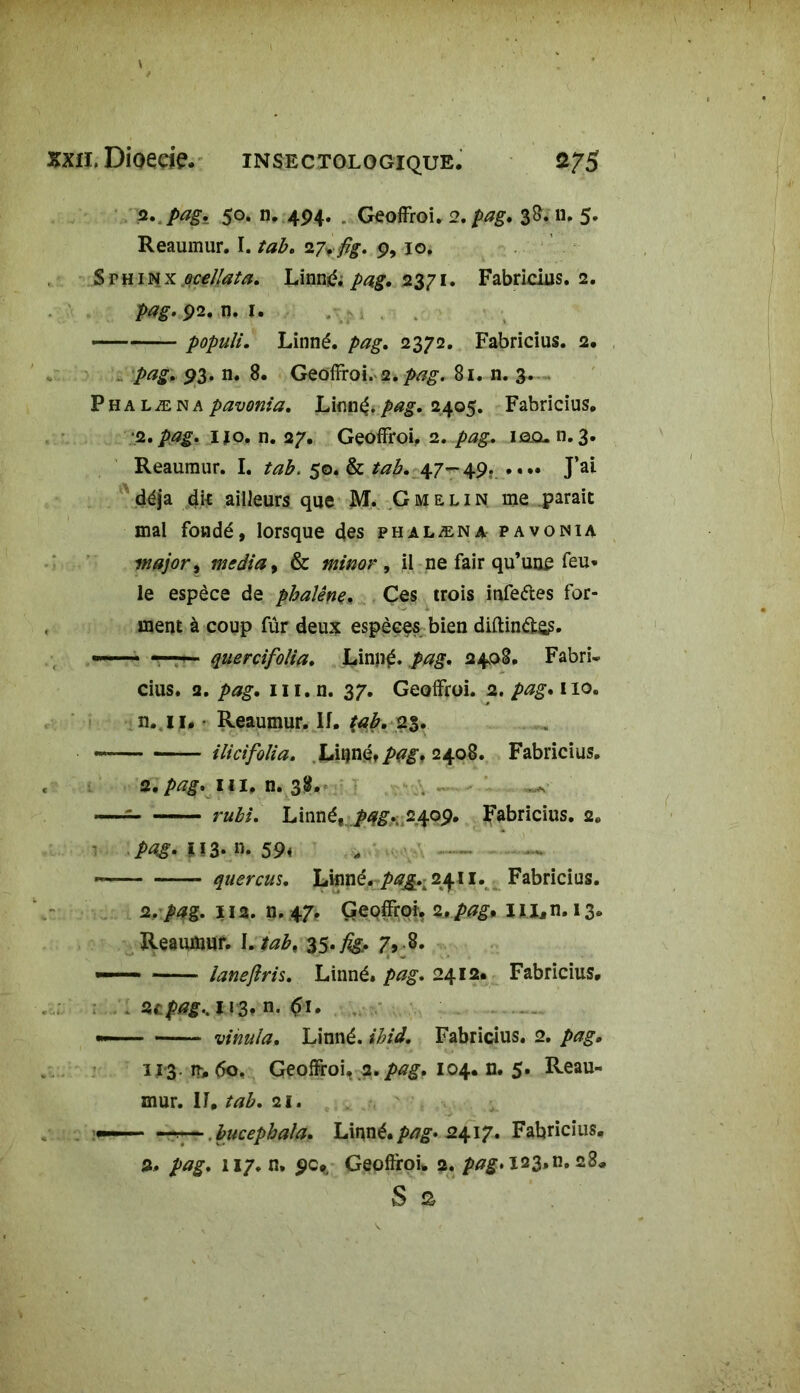 XXII. Dioecie. INSECTOLOGIQUE. 275
2. pag. 50. n. 494. . Geoffroi. 2. pag. 38. n. 5.
Reaumur. I. tab. 27. fig. 9, 10.
SPHINX ocellata. Linné. pag. 2371. Fabricius. 2.
pag. 92. n. 1.
—— populi. Linné. pag. 2372. Fabricius. 2.
pag. 93. n. 8. Geoffroi. 2. pag. 81. n. 3.
PHALÆNA pavonia. Linné. pag. 2405. Fabricius.
2. pag. 110. n. 27. Geoffroi, 2. pag. 100. n. 3.
Reaumur. I. tab. 50. & tab. 47—49. .... J'ai
déja dit ailleurs que M. GMELIN me parait
mal fondé, lorsque des PHALÆNA PAVONIA
major, media, & minor, il ne fair qu'une feu-
le espèce de phalène. Ces trois infectes for-
ment à coup für deux espèces bien diftinctes.
—— —— quercifolia. Linné. pag. 2408. Fabri-
cius. 2. pag. 111. n. 37. Geoffroi. 2. pag. 110.
n. 11. Reaumur. II. tab. 23.
—— —— ilicifolia. Linné, pag. 2408. Fabricius.
2. pag. 111. n. 38.
—— —— rubi. Linné, pag. 2409. Fabricius. 2.
pag. 113. n. 59.
—— —— quercus. Linné. pag. 2411. Fabricius.
2. pag. 112. n. 47. Geoffroi. 2. pag. 111. n. 13.
Reaumur. I. tab. 35. fig. 7, 8.
—— —— laneftris. Linné. pag. 2412. Fabricius.
2. pag. 113. n. 61.
—— —— vinula. Linné. ibid. Fabricius. 2. pag.
113 n. 60. Geoffroi, 2. pag. 104. n. 5. Reau-
mur. II. tab. 21.
—— —— bucephala. Linné. pag. 2417. Fabricius.
2. pag. 117. n. 90. Geoffroi. 2. pag. 123. n. 28.
S 2